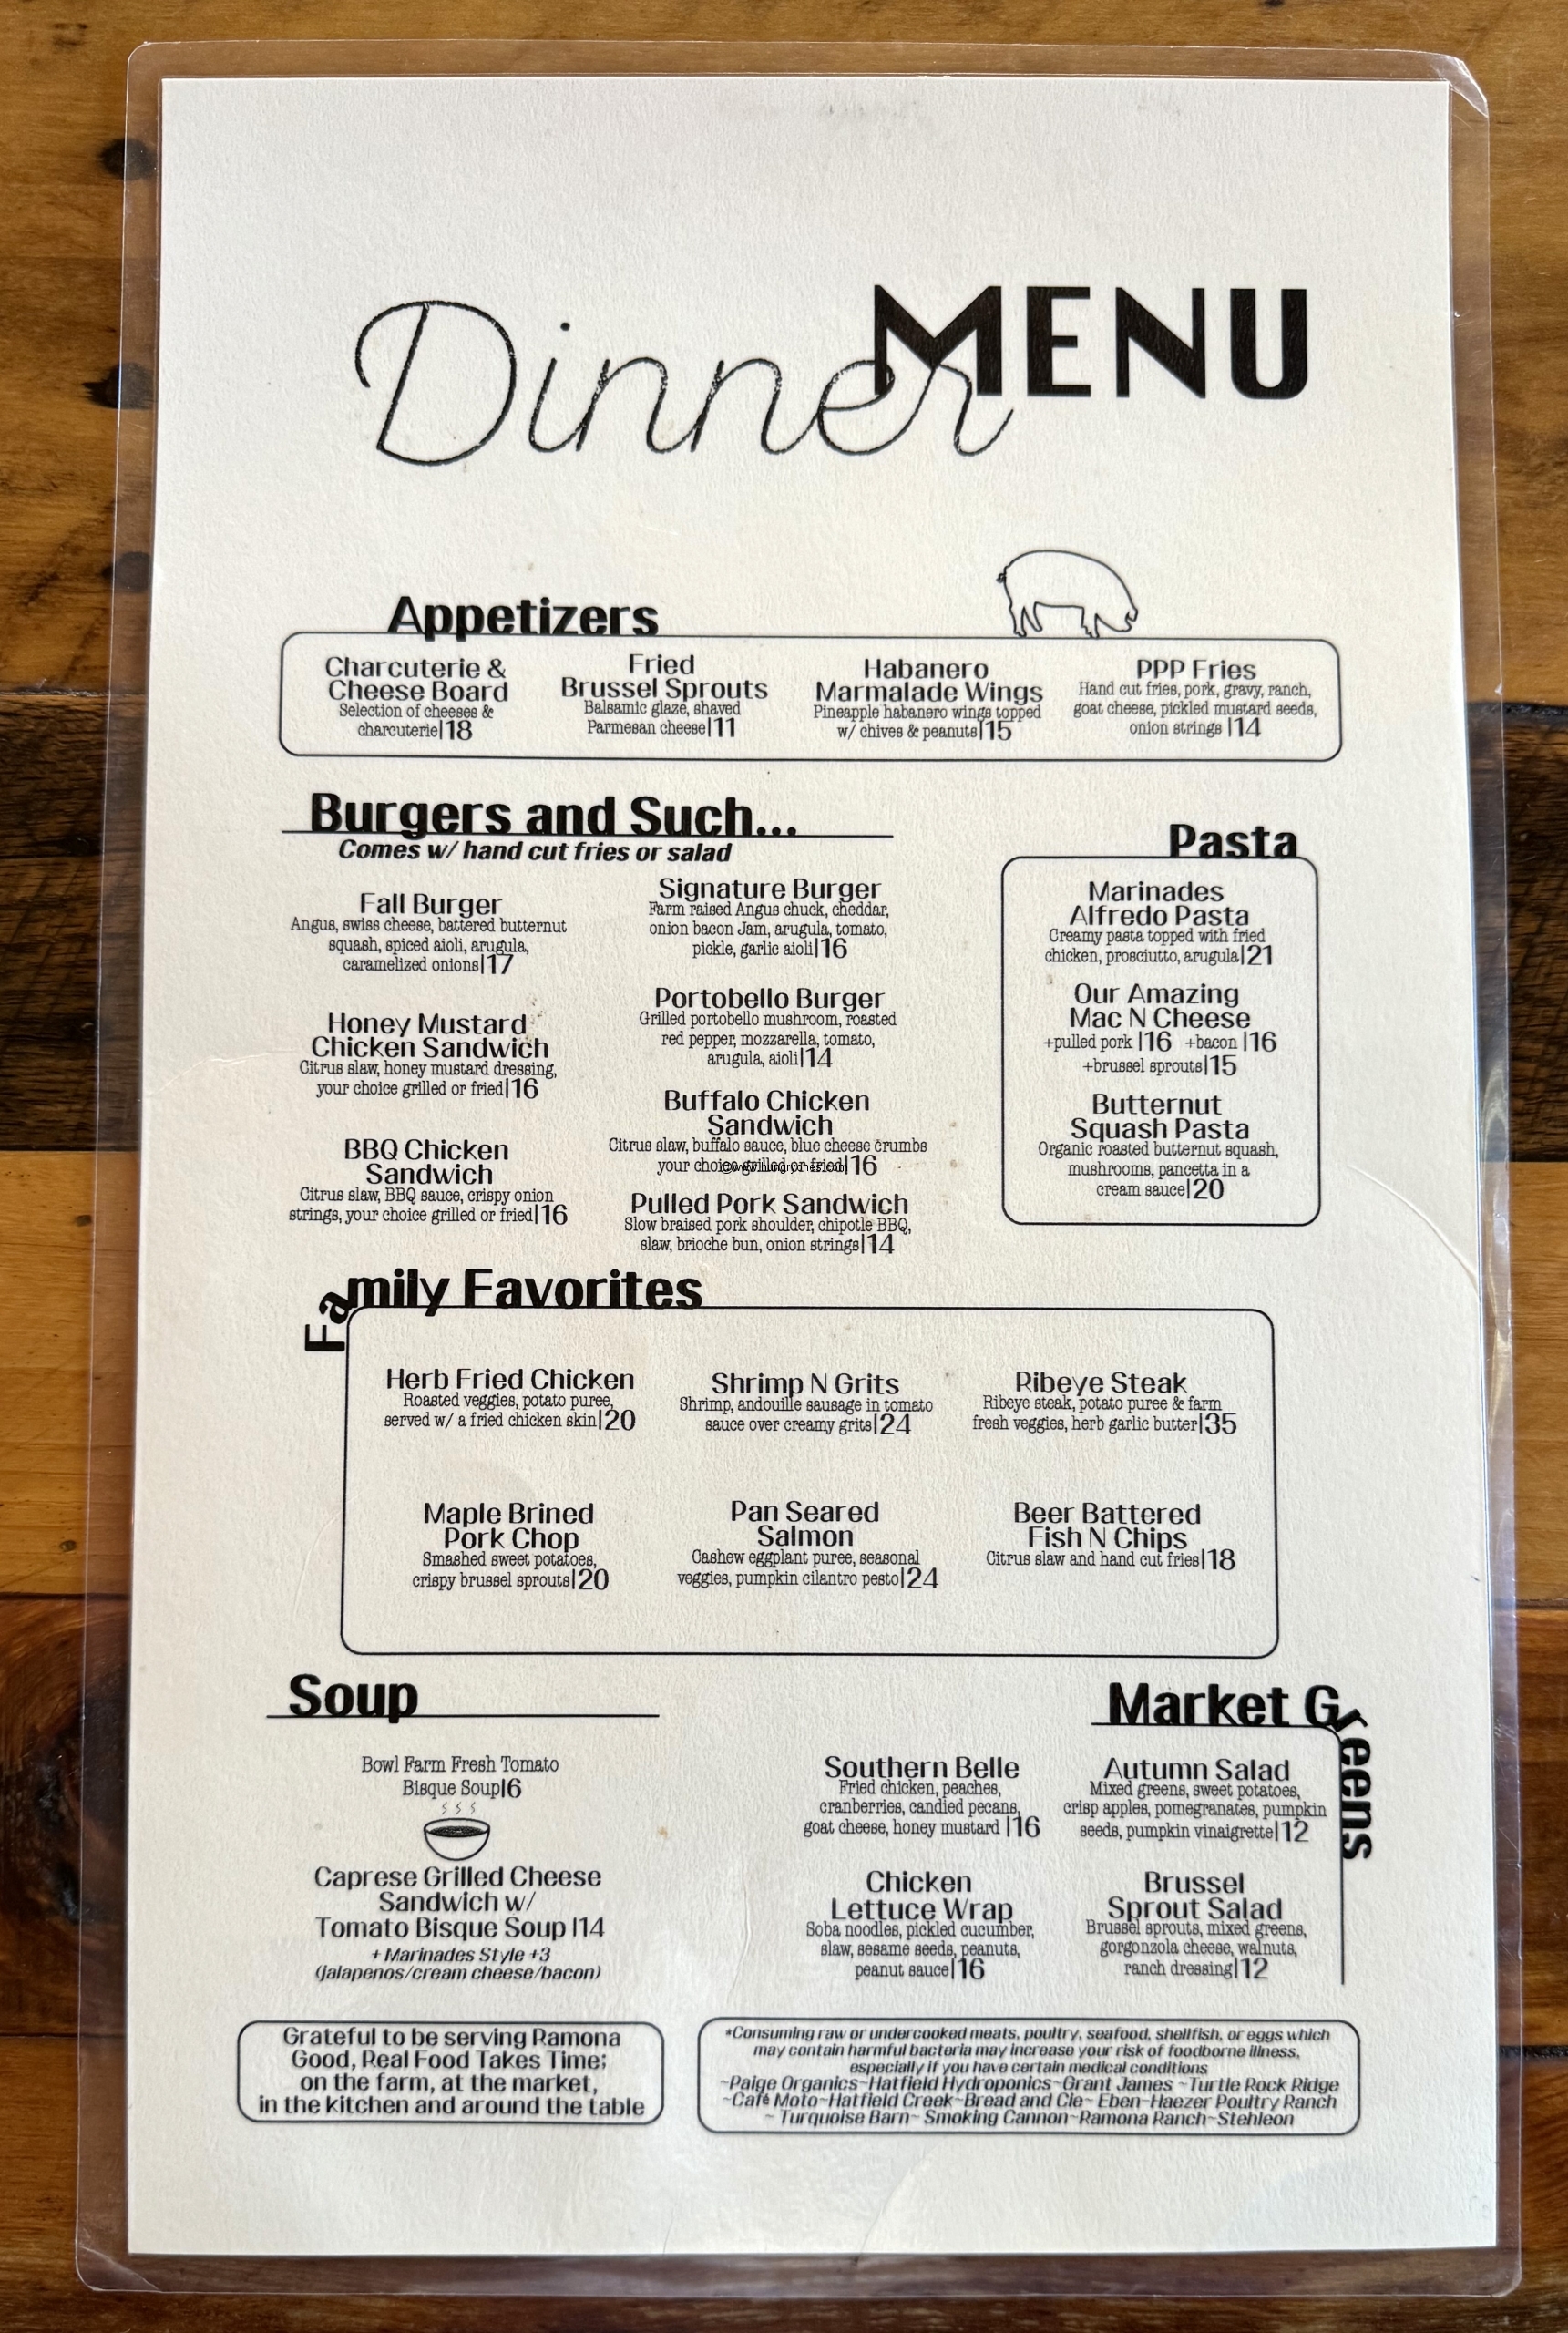 Dinner MENU
Appetizers
Charcuterie &
Cheese Board
Selection of cheeses &
charcuterie|18
Fried
Brussel Sprouts
Balsamic glaze, shaved
Parmesan cheese|11
Habanero
Marmalade Wings
Pineapple habanero wings topped
w/ chives & peanuts|15
PPP Fries
Hand cut fries, pork, gravy, ranch,
goat cheese, pickled mustard seeds,
onion strings |14
Burgers and Such...
Comes w/ hand cut fries or salad
Fall Burger
Angus, swiss cheese, battered butternut
squash, spiced aioli, arugula,
caramelized onions|17
Honey Mustard
Chicken Sandwich
Citrus slaw, honey mustard dressing,
your choice grilled or fried|16
BBQ Chicken
Sandwich
Citrus slaw, BBQ sauce, crispy onion
strings, your choice grilled or fried|16
Signature Burger
Farm raised Angus chuck, cheddar,
onion bacon Jam, arugula, tomato,
pickle, garlic aioli|16
Portobello Burger
Grilled portobello mushroom, roasted
red pepper, mozzarella, tomato,
arugula, aioli|14
Buffalo Chicken
Sandwich
Citrus slaw, buffalo sauce, blue cheese crumbs
your choice grilled or fried|16
Pulled Pork Sandwich
Slow braised pork shoulder, chipotle BBQ,
slaw, brioche bun, onion strings|14
Pasta
Marinades
Alfredo Pasta
Creamy pasta topped with fried
chicken, prosciutto, arugula|21
Our Amazing
Mac N Cheese
+pulled pork |16 +bacon |16
+brussel sprouts|15
Butternut
Squash Pasta
Organic roasted butternut squash,
mushrooms, pancetta in a
cream sauce|20
Family Favorites
Herb Fried Chicken
Roasted veggies, potato puree,
served w/ a fried chicken skin|20
Shrimp N Grits
Shrimp, andouille sausage in tomato
sauce over creamy grits|24
Ribeye Steak
Ribeye steak, potato puree & farm
fresh veggies, herb garlic butter|35
Maple Brined
Pork Chop
Smashed sweet potatoes,
crispy brussel sprouts|20
Pan Seared
Salmon
Cashew eggplant puree, seasonal
veggies, pumpkin cilantro pesto|24
Beer Battered
Fish N Chips
Citrus slaw and hand cut fries|18
Soup
Bowl Farm Fresh Tomato
Bisque Soup|6
Caprese Grilled Cheese
Sandwich w/
Tomato Bisque Soup |14
+ Marinades Style +3
(jalapenos/cream cheese/bacon)
Market Greens
Southern Belle
Fried chicken, peaches,
cranberries, candied pecans,
goat cheese, honey mustard |16
Autumn Salad
Mixed greens, sweet potatoes,
crisp apples, pomegranates, pumpkin
seeds, pumpkin vinaigrette|12
Chicken
Lettuce Wrap
Soba noodles, pickled cucumber,
slaw, sesame seeds, peanuts,
peanut sauce|16
Brussel
Sprout Salad
Brussel sprouts, mixed greens,
gorgonzola cheese, walnuts,
ranch dressing|12
Grateful to be serving Ramona
Good, Real Food Takes Time;
on the farm, at the market,
in the kitchen and around the table
*Consuming raw or undercooked meats, poultry, seafood, shellfish, or eggs which
may contain harmful bacteria may increase your risk of foodborne illness,
especially if you have certain medical conditions
~Paige Organics~Hatfield Hydroponics~Grant James ~Turtle Rock Ridge
~Café Moto~Hatfield Creek~Bread and Cie~ Eben~Haezer Poultry Ranch
~ Turquoise Barn~ Smoking Cannon~Ramona Ranch~Stehleon